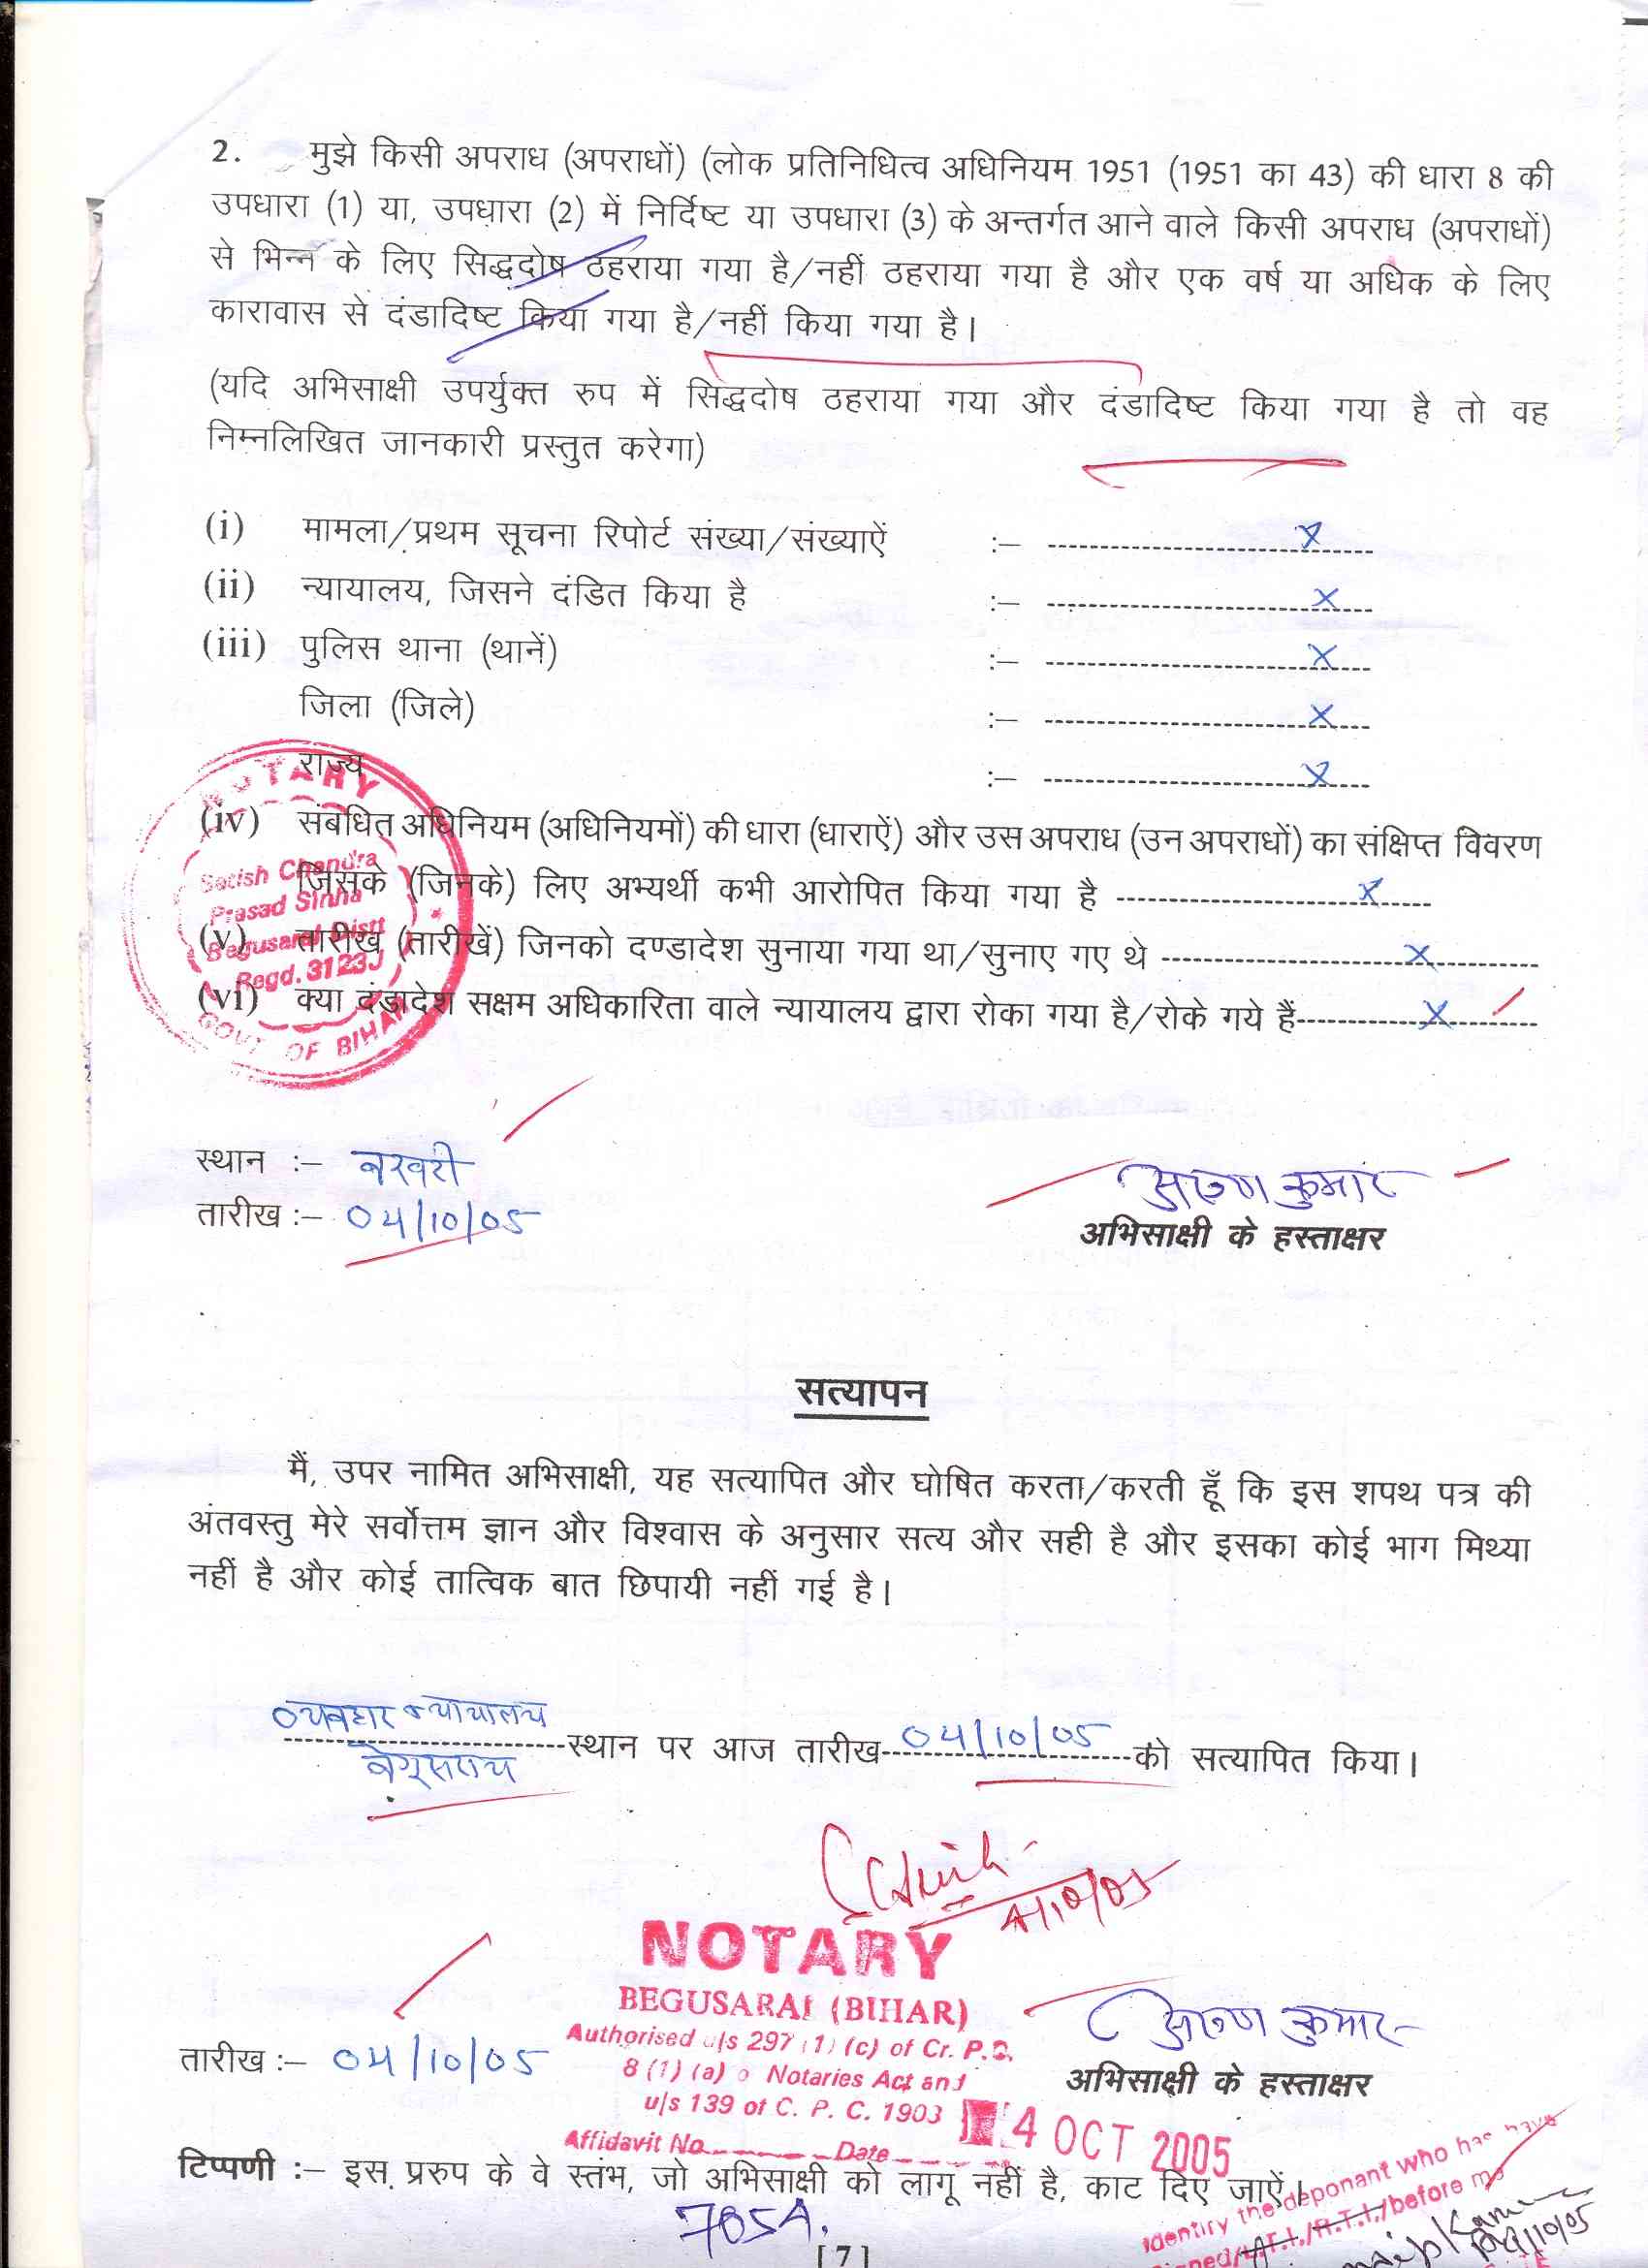 2. मुझे किसी अपराध (अपराधों) (लोक प्रतिनिधित्व अधिनियम 1951 (1951 का 43) की धारा 8 की
उपधारा (1) या, उपधारा (2) में निर्दिष्ट या उपधारा (3) के अन्तर्गत आने वाले किसी अपराध (अपराधों)
से भिन्न के लिए सिद्धदोष ठहराया गया है/नहीं ठहराया गया है और एक वर्ष या अधिक के लिए
कारावास से दंडादिष्ट किया गया है/नहीं किया गया है।
(यदि अभिसाक्षी उपर्युक्त रुप में सिद्धदोष ठहराया गया और दंडादिष्ट किया गया है तो वह
निम्नलिखित जानकारी प्रस्तुत करेगा)
(i) मामला/प्रथम सूचना रिपोर्ट संख्या/संख्याऐं :– X
(ii) न्यायालय, जिसने दंडित किया है :– X
(iii) पुलिस थाना (थानें) :– X
जिला (जिले) :– X
राज्य :– X
(iv) संबधित अधिनियम (अधिनियमों) की धारा (धाराऐं) और उस अपराध (उन अपराधों) का संक्षिप्त विवरण
जिसके (जिनके) लिए अभ्यर्थी कभी आरोपित किया गया है X
(v) तारीख (तारीखें) जिनको दण्डादेश सुनाया गया था/सुनाए गए थे X
(vi) क्या दंडादेश सक्षम अधिकारिता वाले न्यायालय द्वारा रोका गया है/रोके गये हैं X
NOTARY
Satish Chandra
Prasad Sinha
Begusarai Distt
Regd. 3123J
GOVT OF BIHAR
स्थान :– बखरी
तारीख :– 04/10/05
अरुण कुमार
अभिसाक्षी के हस्ताक्षर
सत्यापन
मैं, उपर नामित अभिसाक्षी, यह सत्यापित और घोषित करता/करती हूँ कि इस शपथ पत्र की
अंतवस्तु मेरे सर्वोत्तम ज्ञान और विश्वास के अनुसार सत्य और सही है और इसका कोई भाग मिथ्या
नहीं है और कोई तात्विक बात छिपायी नहीं गई है।
व्यवहार न्यायालय
बेगूसराय
स्थान पर आज तारीख 04/10/05 को सत्यापित किया।
4/10/05
NOTARY
BEGUSARAI (BIHAR)
Authorised u/s 297 (1) (c) of Cr. P.C.
8 (1) (a) o Notaries Act and
u/s 139 of C. P. C. 1903
Affidavit No Date
4 OCT 2005
तारीख :– 04/10/05
अरुण कुमार
अभिसाक्षी के हस्ताक्षर
टिप्पणी :– इस प्ररुप के वे स्तंभ, जो अभिसाक्षी को लागू नहीं है, काट दिए जाऐं।
705A.
Identiry the deponant who has have
L.T.I./R.T.I./before me
[7]